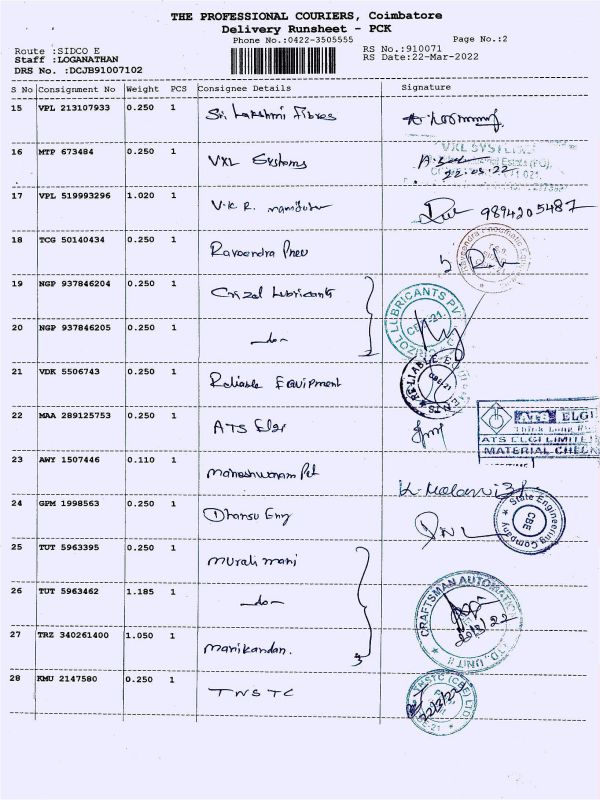 THE PROFESSIONAL COURIERS, Coimbatore
Delivery Runsheet - PCK
Phone No.:0422-3505555 Page No.:2
Route :SIDCO E RS No.:910071
Staff :LOGANATHAN RS Date:22-Mar-2022
DRS No. :DCJB91007102
S No Consignment No Weight PCS Consignee Details Signature
15 VPL 213107933 0.250 1 Sri Lakshmi Fibres
16 MTP 673484 0.250 1 VXL Systems
VXL SYSTEMS
22.03.22
17 VPL 519993296 1.020 1 V.K.R. 9894205487
18 TCG 50140434 0.250 1 Raveendra Pneu
19 NGP 937846204 0.250 1 Crizol Lubricants
CRIZOL LUBRICANTS PVT
CBE-21
20 NGP 937846205 0.250 1 -do-
21 VDK 5506743 0.250 1 Reliable Equipment
RELIABLE EQUIPMENTS
CBE-21
22 MAA 289125753 0.250 1 ATS Elgi
ATS ELGI
Think Long
ATS ELGI LIMITED
MATERIAL CHECK
23 AWY 1507446 0.110 1
24 GPM 1998563 0.250 1 Dhansu Eng
State Engineering Company
CBE
25 TUT 5963395 0.250 1 Murali mani
26 TUT 5963462 1.185 1 -do-
CRAFTSMAN AUTOMATION LTD, UNIT II
22/3/22
27 TRZ 340261400 1.050 1 Manikandan.
28 KMU 2147580 0.250 1 TNSTC
TNSTC (CBE) LTD
22/3/22